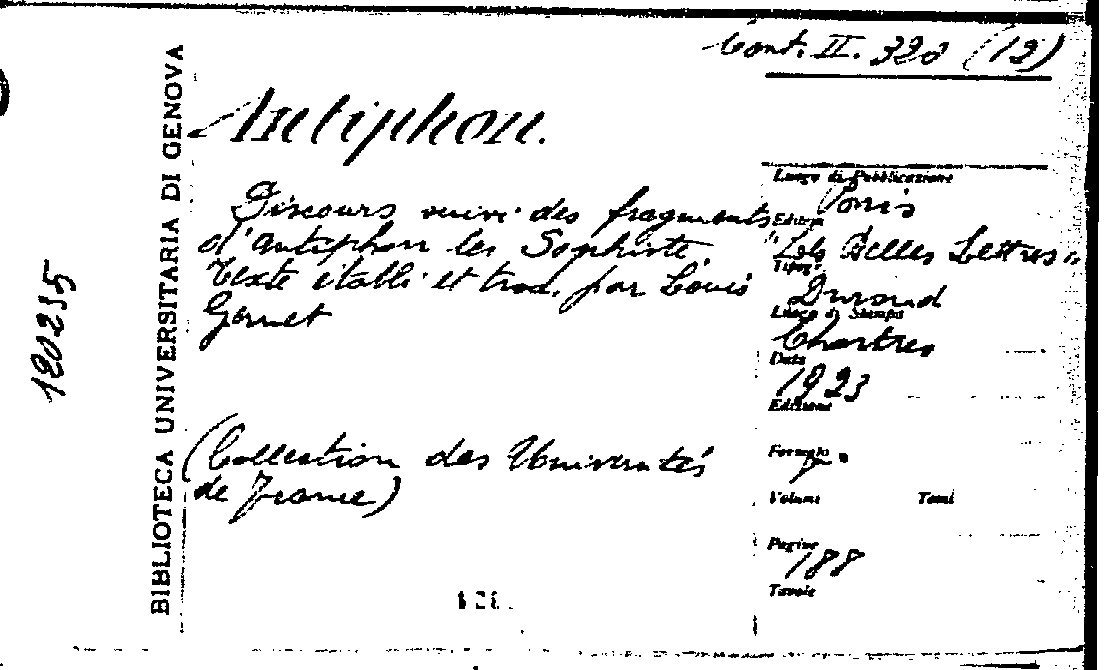 Cont. II. 320 (12)
Antiphon.
Discours suivi des fragments
d'Antiphon les Sophiste.
Texte établi et trad. par Louis
Gernet
(Collection des Universités
de France)
BIBLIOTECA UNIVERSITARIA DI GENOVA
120235
Luogo di Pubblicazione
Paris
Editore
"Les Belles Lettres"
Tipogr.
Durand
Luogo di Stampa
Chartres
Data
1923
Edizione
Formato
Volumi Tomi
Pagine
188
Tavole